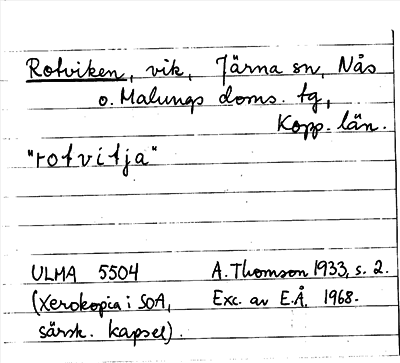 Rotviken, vik, Järna sn, Nås
o. Malungs doms. tg,
Kopp. län.
"rotvitja"
ULMA 5504 A. Thomson 1933, s. 2.
(Xerokopia i SOA, Exc. av E.Å. 1968.
särsk. kapsel).